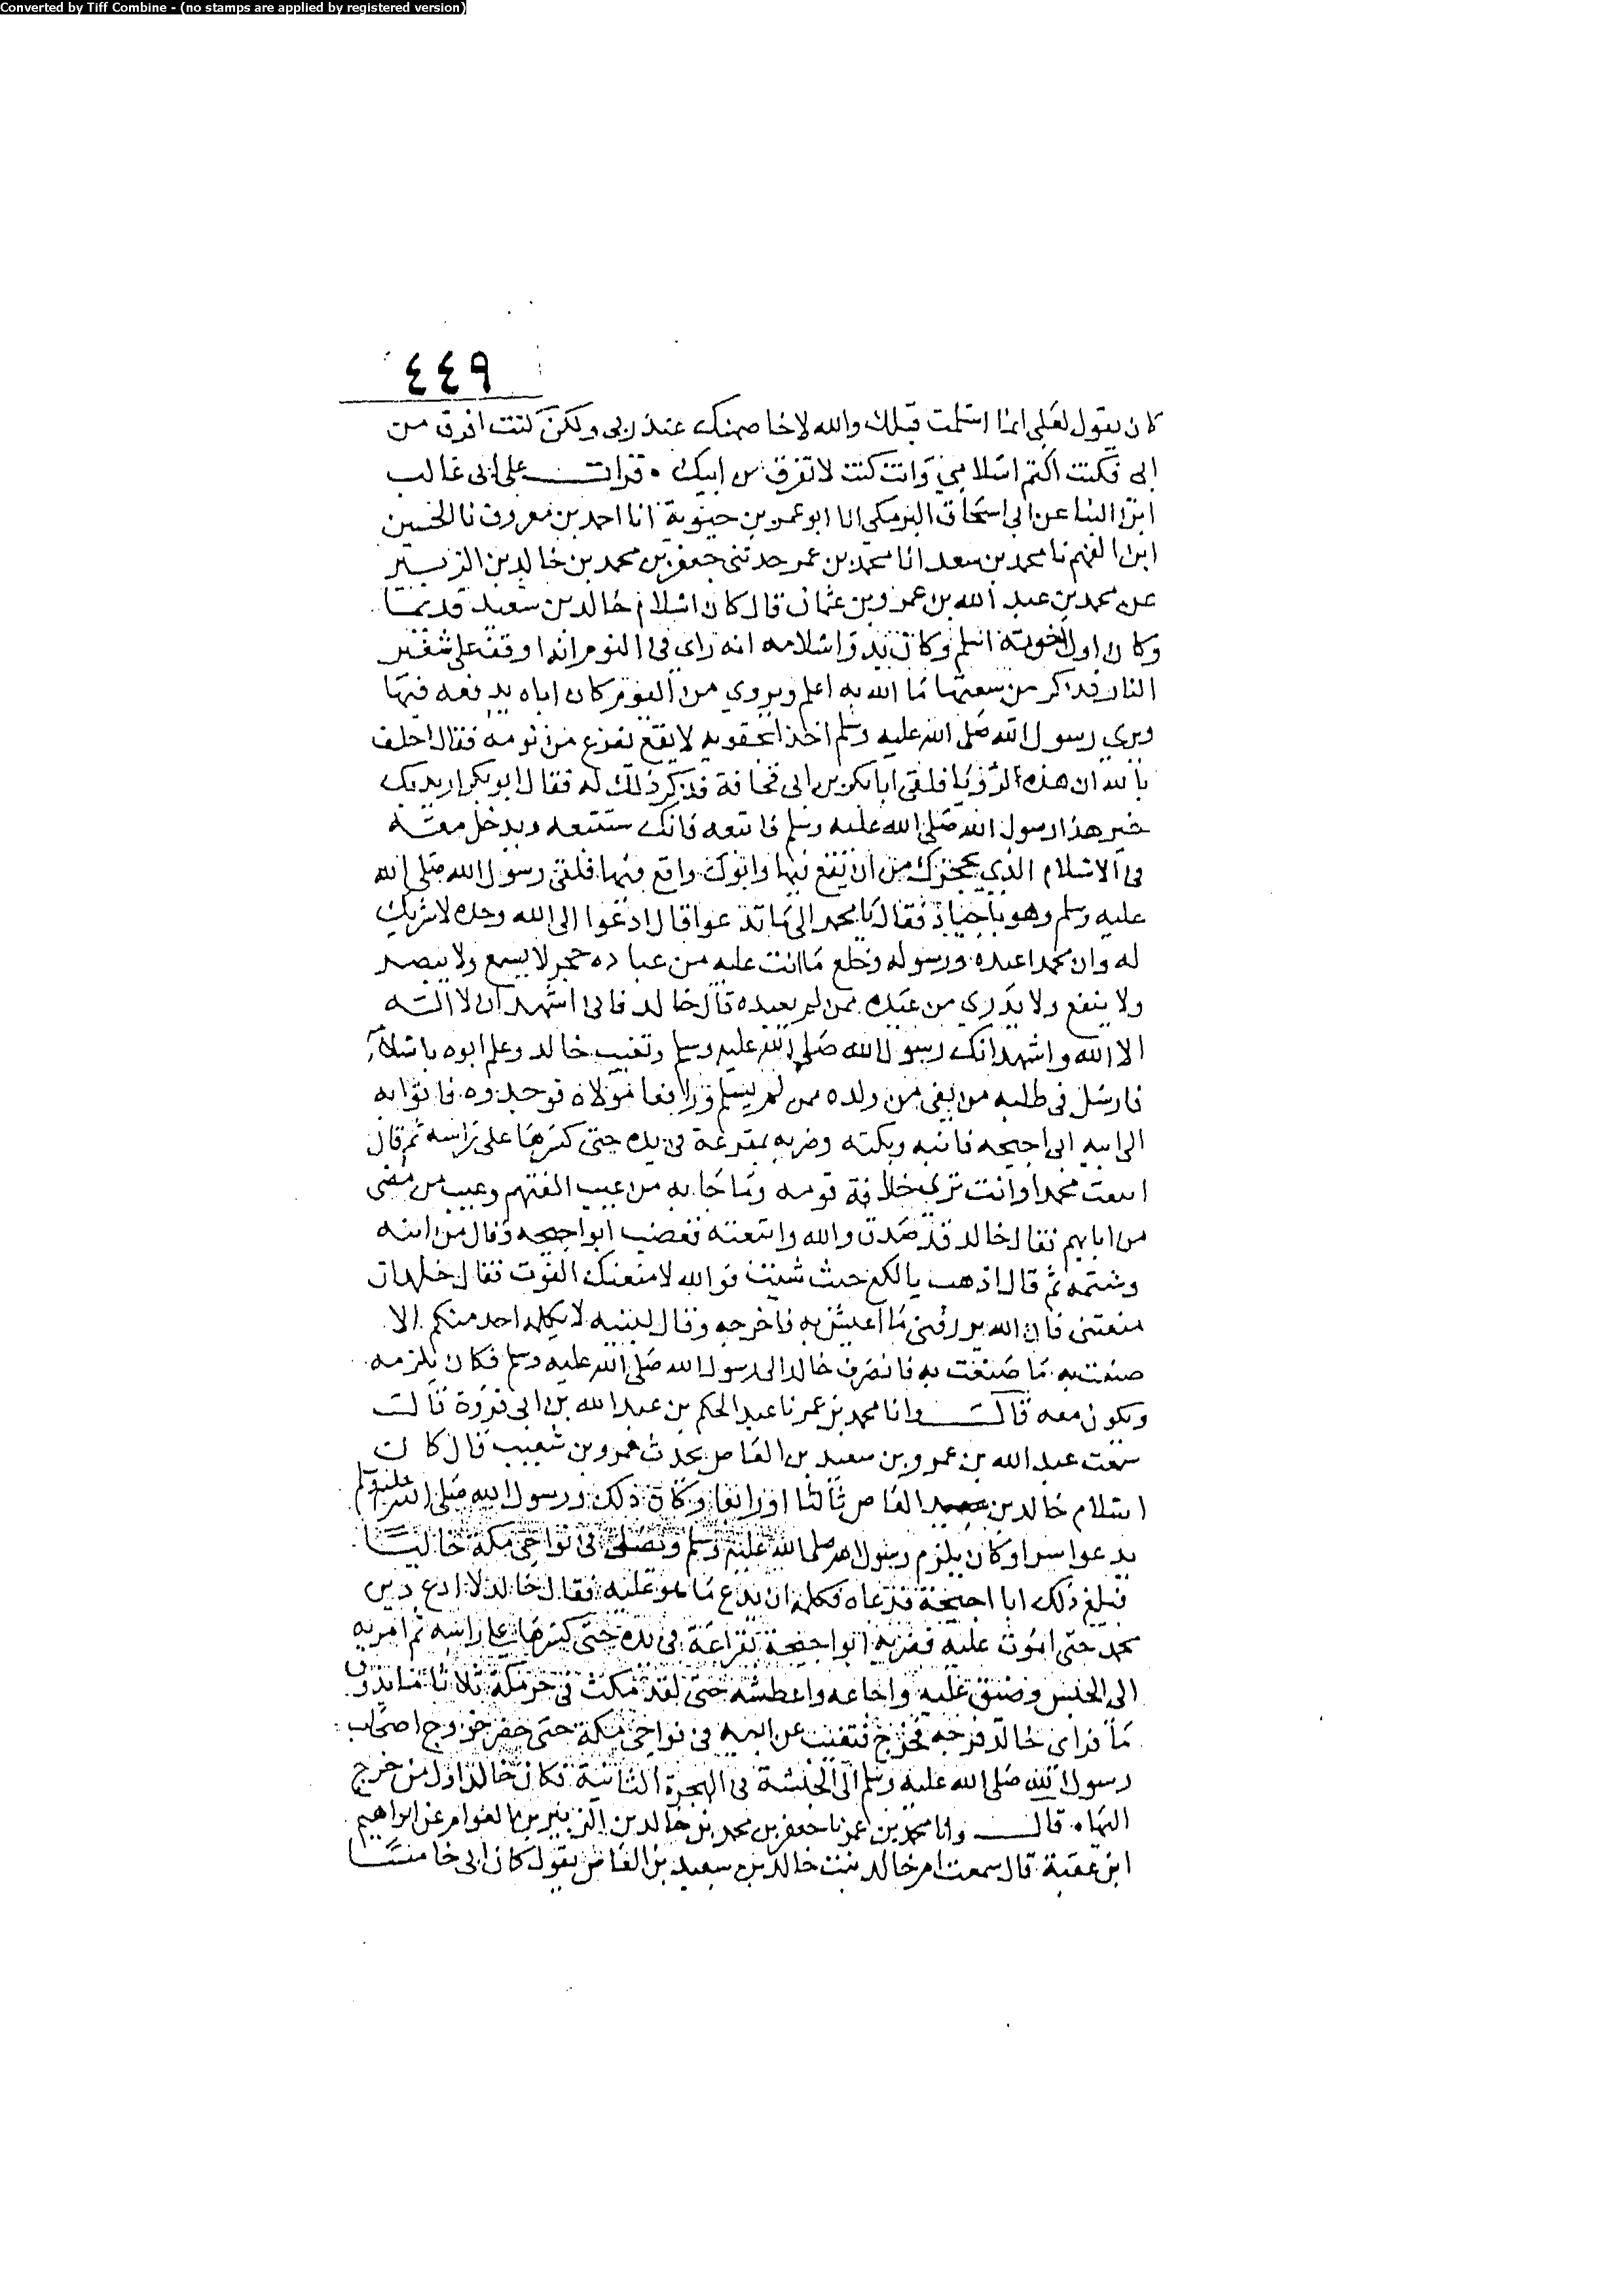 Converted by Tiff Combine - (no stamps are applied by registered version)
٤٤٩
كان يقول لعلي انما اسلمت قبلك والله لاخاصمنك عند ربي ولكن كنت افرق من
ابي فكنت اكتم اسلامي وانت كنت لا تفرق من ابيك ٠ قرات على ابي غالب
ابن البنا عن ابي اسحاق البرمكي انا ابو عمر بن حيوية انا احمد بن معروف نا الحسين
ابن الفهم نا محمد بن سعد انا محمد بن عمر حدثني جعفر بن محمد بن خالد بن الزبير
عن محمد بن عبد الله بن عمرو بن عثمان قال كان اسلام خالد بن سعيد قديما
وكان اول اخوته اسلم وكان بدو اسلامه انه راى في النوم انه اوقف على شفير
النار فذكر من سعتها ما الله به اعلم ويروي من النوم كان اباه يدفعه فيها
ويرى رسول الله صلى الله عليه وسلم اخذا بحقويه لا يقع ففزع من نومه فقال احلف
بالله ان هذه الرؤيا فلقي ابا بكر بن ابي قحافة فذكر ذلك له فقال ابو بكر اريد بك
خير هذا رسول الله صلى الله عليه وسلم فاتبعه فانك ستتبعه وتدخل معه
في الاسلام الذي يحجزك من ان تقع فيها وابوك واقع فيها فلقي رسول الله صلى الله
عليه وسلم وهو باجياد فقال يا محمد الى ما تدعوا قال ادعوا الى الله وحده لا شريك
له وان محمدا عبده ورسوله وخلع ما انت عليه من عباده حجر لا يسمع ولا يبصر
ولا ينفع ولا يدري من عبده ممن لم يعبده قال خالد فاني اشهد ان لا اله
الا الله واشهد انك رسول الله صلى الله عليه وسلم وتغيب خالد وعلم ابوه باسلامه
فارسل في طلبه من بقي من ولده ممن لم يسلم ورافعا مولاه فوجدوه فاتوا به
الى ابيه ابي احيحه فانبه وبكته وضربه بمقرعة في يده حتى كسرها على راسه ثم قال
اتبعت محمدا وانت ترى خلافة قومه وما جا به من عيب الهتهم وعيب من مضى
من ابايهم فقال خالد قد صدق والله واتبعته فغضب ابو احيحه ونال من ابنه
وشتمه ثم قال اذهب يا لكع حيث شيت فوالله لامنعنك القوت فقال خالد ان
منعتني فان الله يرزقني ما اعيش به فاخرجه وقال لبنيه لا يكلمه احد منكم الا
صنعت به ما صنعت به فانصرف خالد الى رسول الله صلى الله عليه وسلم فكان يلزمه
ويكون معه قال وانا محمد بن عمر نا عبد الحكم بن عبد الله بن ابي فروة قال
سمعت عبد الله بن عمرو بن سعيد بن العاص يحدث عمرو بن شعيب قال كان
اسلام خالد بن سعيد العاص ثالثا او رابعا وكان ذلك ورسول الله صلى الله عليه وسلم
يدعوا سرا وكان يلزم رسول الله صلى الله عليه وسلم ويصلي في نواحي مكة خاليا
فبلغ ذلك ابا احيحة فدعاه فكلمه ان يدع ما هو عليه فقال خالد لا ادع دين
محمد حتى اموت عليه فضربه ابو احيحة بقراعة في يده حتى كسرها على راسه ثم امر به
الى الحبس وضيق عليه واجاعه واعطشه حتى لقد مكث في حر مكة ثلاثا ما يذوق
ما فراى خالد فرجه فخرج فتغيب عن ابيه في نواحي مكة حتى حضر خروج اصحاب
رسول الله صلى الله عليه وسلم الى الحبشة في الهجرة الثانية فكان خالد اول من خرج
اليها ٠ قال وانا محمد بن عمر نا جعفر بن محمد بن خالد بن الزبير بن العوام عن ابراهيم
ابن عقبة قال سمعت ام خالد بنت خالد بن سعيد بن العاص يقول كان ابي خامسا